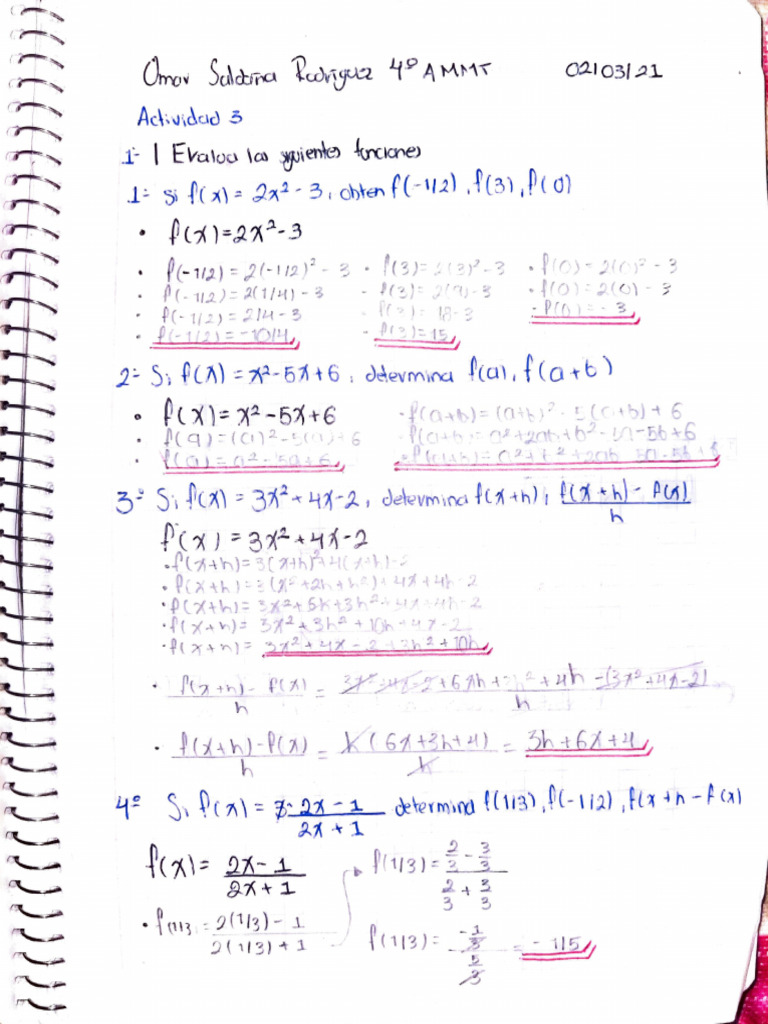 Omar Saldaña Rodríguez 4º AMMT 02/03/21
Actividad 3
1- | Evalua las siguientes funciones
1- Si f(x) = 2x² - 3, obten f(-1/2), f(3), f(0)
• f(x) = 2x² - 3
• f(-1/2) = 2(-1/2)² - 3 • f(3) = 2(3)² - 3 • f(0) = 2(0)² - 3
• f(-1/2) = 2(1/4) - 3 - f(3) = 2(9) - 3 • f(0) = 2(0) - 3
• f(-1/2) = 2/4 - 3 • f(3) = 18 - 3 • f(0) = - 3
• f(-1/2) = -10/4 • f(3) = 15
2- Si f(x) = x² - 5x + 6, determina f(a), f(a+b)
• f(x) = x² - 5x + 6 • f(a+b) = (a+b)² - 5(a+b) + 6
• f(a) = (a)² - 5(a) + 6 - f(a+b) = a² + 2ab + b² - 5a - 5b + 6
• f(a) = a² - 5a + 6 • f(a+b) = a² + b² + 2ab - 5a - 5b + 6
3- Si f(x) = 3x² + 4x - 2, determina f(x+h), f(x+h) - f(x) / h
f(x) = 3x² + 4x - 2
• f(x+h) = 3(x+h)² + 4(x+h) - 2
• f(x+h) = 3(x² + 2h + h²) + 4x + 4h - 2
• f(x+h) = 3x² + 6h + 3h² + 4x + 4h - 2
• f(x+h) = 3x² + 3h² + 10h + 4x - 2
• f(x+h) = 3x² + 4x - 2 + 3h² + 10h
• f(x+h) - f(x) / h = 3x² + 4x - 2 + 6xh + 3h² + 4h - (3x² + 4x - 2) / h
• f(x+h) - f(x) / h = h(6x + 3h + 4) / h = 3h + 6x + 4
4º Si f(x) = 2x - 1 / 2x + 1 determina f(1/3), f(-1/2), f(x+h - f(x)
f(x) = 2x - 1 / 2x + 1 f(1/3) = 2/3 - 3/3 / 2/3 + 3/3
• f(1/3) = 2(1/3) - 1 / 2(1/3) + 1 f(1/3) = -1/3 / 5/3 = - 1/5